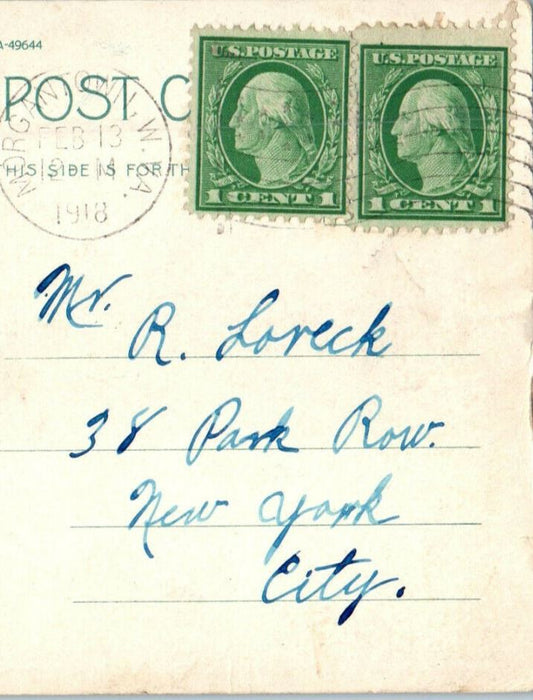 A-49644
POST C
U.S. POSTAGE
1 CENT 1
U.S. POSTAGE
1 CENT 1
MORGANTOWN, W. VA.
FEB 13
12 M
1918
THIS SIDE IS FOR TH
Mr.
R. Loreck
38 Park Row.
New York
City.